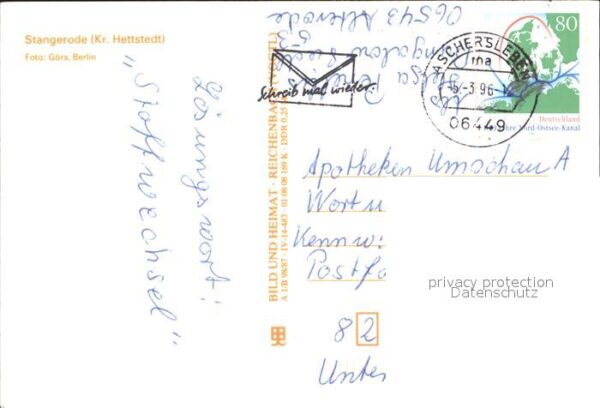 Stangerode (Kr. Hettstedt)
Foto: Görs, Berlin
Lösungswort:
„Stoffwechsel"
BILD UND HEIMAT · REICHENBACH
A 1/B 98/87 · IV-14-483 · 01 08 08 169 K · DDR 0,25
06543 Alterode
Schreib mal wieder.
ASCHERSLEBEN
-3.96
06449
80
Deutschland
Nord-Ostsee-Kanal
Apotheken Umschau A
Wort u
Kennw:
Postfa
82
Unter
privacy protection
Datenschutz